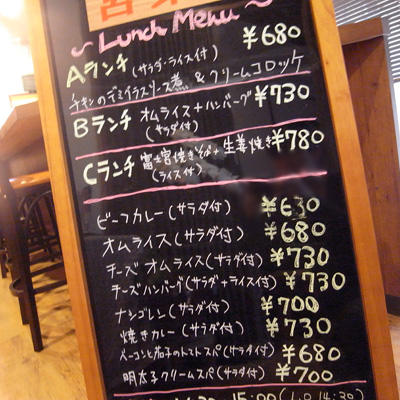 ~ Lunch Menu ~
Aランチ (サラダ・ライス付) ¥680
チキンのデミグラスソース煮 & クリームコロッケ
Bランチ オムライス+ハンバーグ ¥730
(サラダ付)
Cランチ 富士宮焼きそば+生姜焼き ¥780
(ライス付)
ビーフカレー(サラダ付) ¥630
オムライス(サラダ付) ¥680
チーズオムライス(サラダ付) ¥730
チーズハンバーグ(サラダ+ライス付) ¥730
ナシゴレン(サラダ付) ¥700
焼きカレー(サラダ付) ¥730
ベーコンと茄子のトマトスパ(サラダ付) ¥680
明太子クリームスパ(サラダ付) ¥700
15:00 (L.O 14:30)